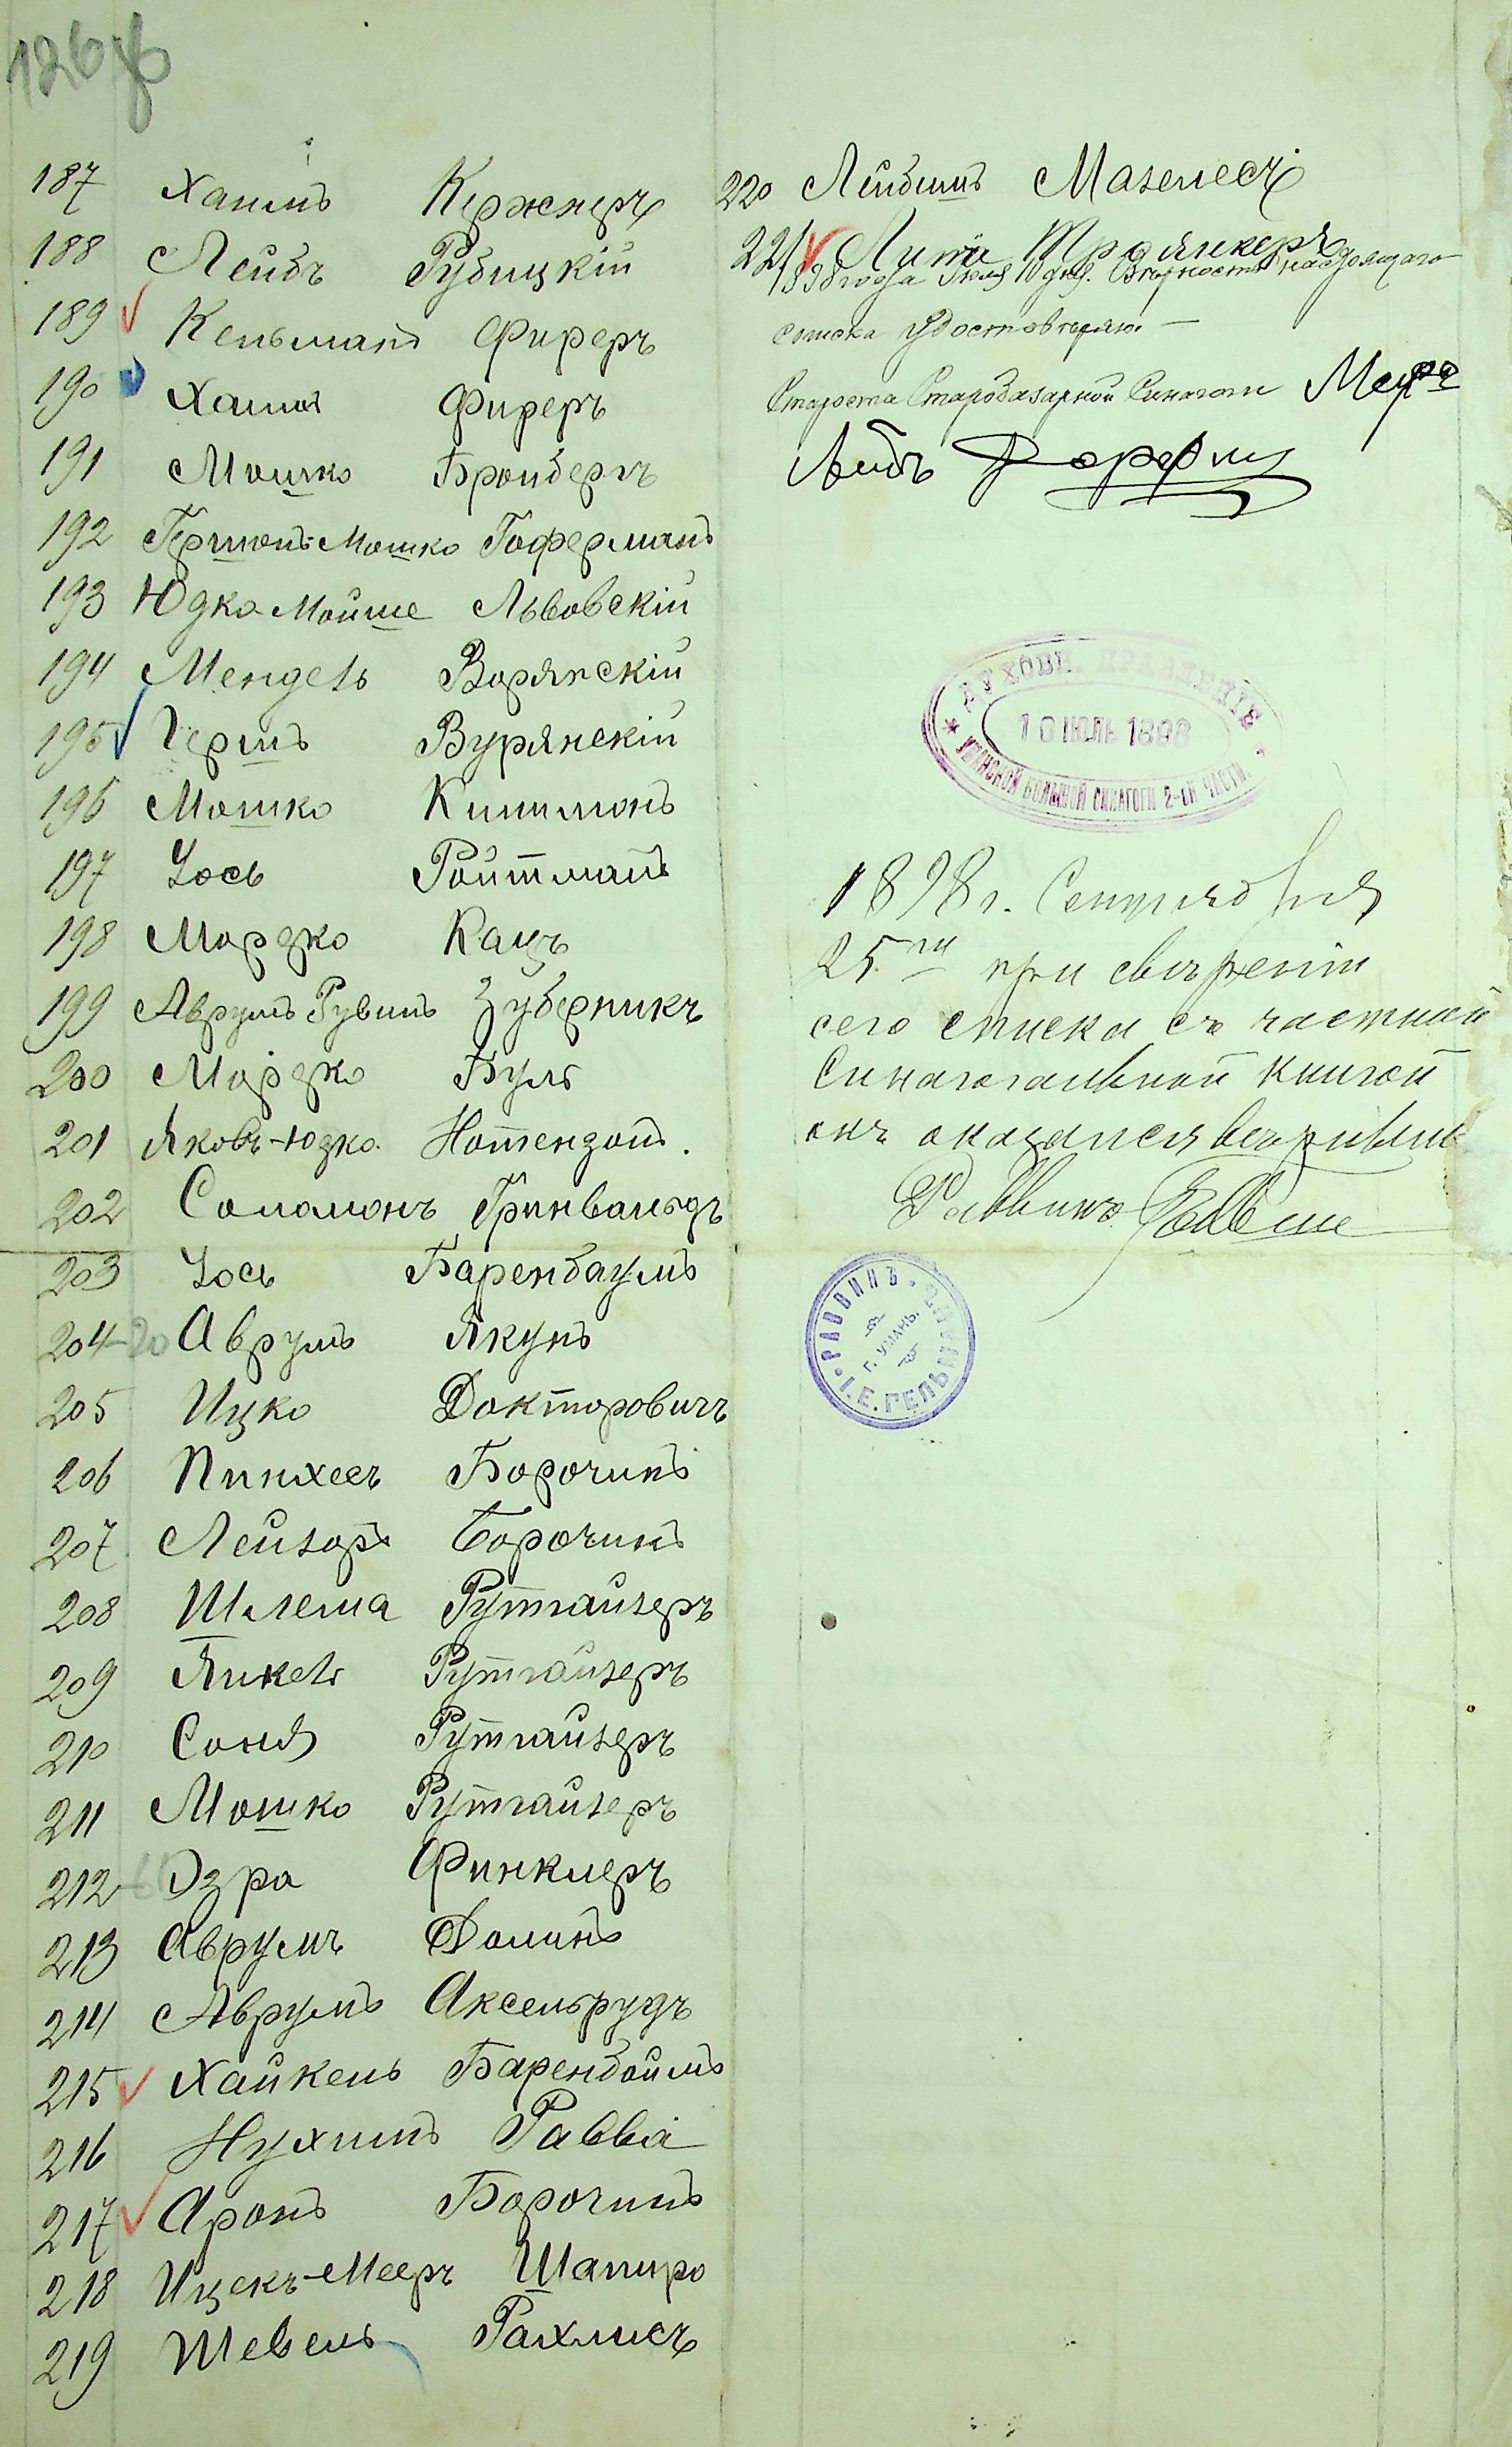 126 об
187 Хаимъ Кержнеръ
188 Лейбъ Рубицкій
189 Кельманъ Фиреръ
190 Хаимъ Фиреръ
191 Мошко Бройбергъ
192 Гершонъ-Мошко Гоферманъ
193 Юдко Мойше Львовскій
194 Мендель Ворянскій
195 Гершъ Вурянскій
196 Мошко
197 Іось Ройтманъ
198 Мордко Кацъ
199 Аврумъ Рувинъ Зуберникъ
200 Мордко Буль
201 Яковъ-Юдко
202 Соломонъ Гринвальдъ
203 Іось Баренбаумъ
204-20 Аврумъ Якунъ
205 Ицко Докторовичъ
206 Пинхесъ Борочинъ
207 Лейзоръ Борочинъ
208 Шлема Рутгайзеръ
209 Янкель Рутгайзеръ
210 Соня Рутгайзеръ
211 Мошко Рутгайзеръ
212 Эзра Финклеръ
213 Аврумъ Долинъ
214 Аврумъ Аксельрудъ
215 Хайкель Баренбоймъ
216 Нухимъ Равва
217 Аронъ Борочинъ
218 Ицекъ-Мееръ Шапиро
219 Шевель Рахлисъ
220 Лейбишъ Мазелесъ
221 Троянкеръ
1898 года Іюля 10 дня. Вѣрность настоящаго
списка удостовѣряю —
Староста Старобазарной Синагоги
Лейбъ
ДУХОВН. ПРАВЛЕНІЕ
10 ІЮЛЬ 1898
УМАНСКОЙ БОЛЬШОЙ СИНАГОГИ 2-ОЙ ЧАСТИ
1898 г. Сентября
25 го при свѣреніи
сего списка съ частной
Синагогальной книгой
онъ оказался вѣрнымъ
Раввинъ
РАВВИНЪ
Г. УМАНЬ.
І. Е. ГЕЛЬ